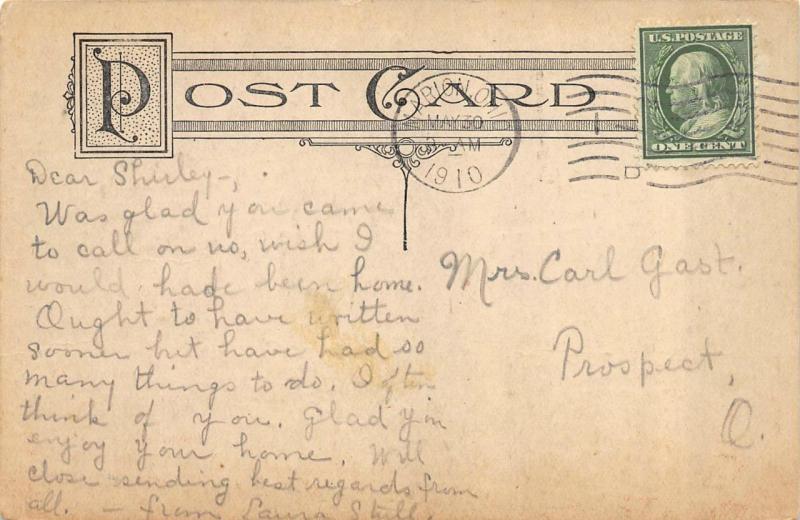 POST CARD
U.S. POSTAGE
ONE CENT
MARION, OHIO
MAY 30
AM
1910
D
Dear Shirley—,
Was glad you came
to call on us, wish I
would have been home.
Ought to have written
sooner but have had so
many things to do. I often
think of you. Glad you
enjoy your home. Will
close sending best regards from
all. — from Laura Stull.
Mrs. Carl Gast.
Prospect,
O.